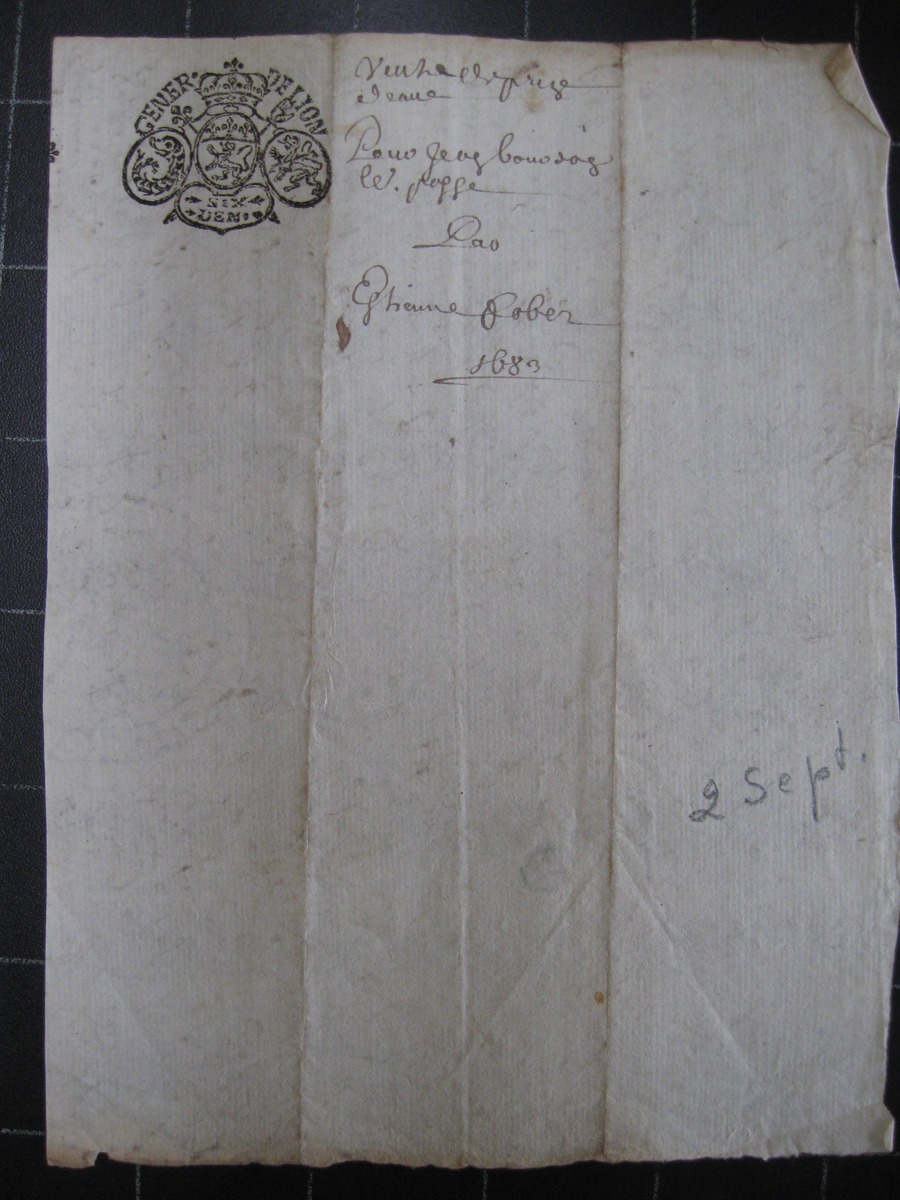 GENER. DE LION
SIX
DEN.
Vente de prize
d'eaue
Pour Jean
le.
Par
Estienne Rober
1683
2 Sept.